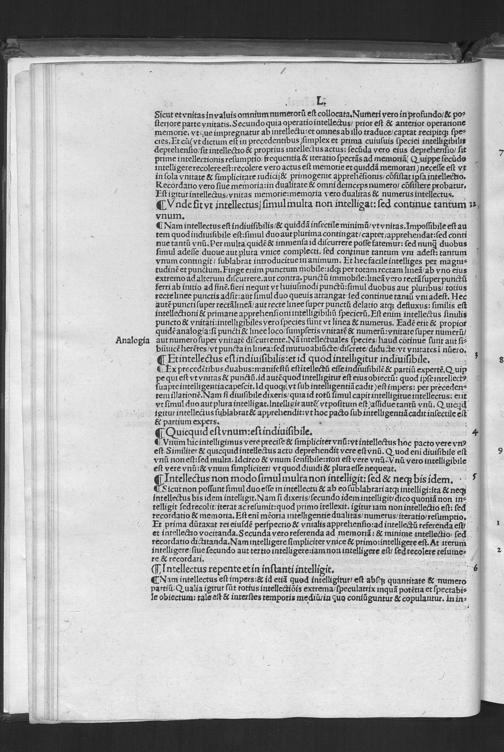 L.
Sicut et vnitas in valuis omnium numerorū est collocata. Numeri vero in profundo/ & po-
steriore parte vnitatis. Secundo quia operatio intellectus/ prior est & anterior operatione
memorie. vtque impregnatur ab intellectu: et omnes ab illo traduce/ captat recipitque spe-
cies. Et cū/ vt dictum est in precedentibus simplex et prima cuiusuis speciei intelligibilis
deprehensio/ sit intellectio & proprius intellectus actus: secūda vero eius deprehensio/ sit
prime intellectionis resumptio/ frequentia & iteratio spectās ad memoriā. Quippe secūdo
intelligere recolere est: recolere vero actus est memorie et quiddā memorari: necesse est vt
in sola vnitate & simplicitate iudicij & primogenie apprehensionis/ cōsistat ipsa intellectio.
Recordatio vero siue memoria: in dualitate & omni deinceps numero/ cōsistere probatur.
Est igitur intellectus: vnitas memorie: memoria vero dualitas & numerus intellectus.
¶ Vnde fit vt intellectus/ simul multa non intelligat: sed continue tantum
vnum.
¶ Nam intellectus est indiuisibilis/ & quiddā insectile minimū/ vt vnitas. Impossibile est au
tem quod indiuisibile est: simul duo aut plurima contingat/ captet/ apprehendat: sed conti
nue tantū vnū. Per multa quidē & immensa id discurrere posse fatemur: sed nunquā duobus
simul adesse/ duoue aut plura vnice complecti. sed continue tantum vni adesse: tantum
vnum contingit/ sublatrat/ introducitue in animum. Et hec facile intelliges per magni-
tudinē et punctum. Finge enim punctum mobile: idque per totam rectam lineā/ ab vno eius
extremo ad alterum discurrere. aut contra. punctū immobile: lineā vero rectā super punctū
ferri ab initio ad finē. fieri nequit vt huiusmodi punctū: simul duobus aut pluribus/ totius
recte linee punctis adsit: aut simul duo queuis attingat: sed continue tantū vni adest. Hec
aūt puncti super rectā lineā: aut recte linee super punctū delatio atque defluxus: similis est
intellectioni & primarie apprehensioni intelligibiliū specierū. Est enim intellectus similis
puncto & vnitati: intelligibiles vero species sunt vt linea & numerus. Eadē enī & propior
quidē analogia: si puncti & linee loco/ sumpseris vnitatē & numerū: vnitatē super numerū/
aut numerū super vnitatē discurrente. Nā intellectuales species/ haud continue sunt aut si-
bi inuicē herētes/ vt puncta in linea: sed mutuo abiūcte/ discrete/ diductę: vt vnitates ī nūero.
Analogia
¶ Et intellectus est indiuisibilis: et id quod intelligitur indiuisibile.
¶ Ex precedētibus duabus: manifestū est intellectū esse indiuisibilē & partiū expertē. Quip
pe qui est vt vnitas & punctū. id autē quod intelligitur est eius obiectū: quod ipse intellectꝰ/
sua pte intelligentia capescit. Id quoque vt sub intelligentiā cadit: est impers: per preceden-
tem illationē. Nam si diuisibile dixeris: quia id totū simul capit intelligitue intellectus: erit
vt simul duo aut plura intelligat. Intelligit autē vt positum est: assidue tantū vnū. Quicquid
igitur intellectus sublatrat & apprehendit: vt hoc pacto sub intelligentiā cadit insectile est
& partium expers.
¶ Quicquid est vnum: est indiuisibile.
¶ Vnum hic intelligimus vere precise & simpliciter vnū: vt intellectus hoc pacto vere vnꝰ
est. Similiter & quicquid intellectus actu deprehendit vere est vnū. Quod eni diuisibile est
vnū non est: sed multa. Idcirco & vnum sensibile: non est vere vnū. Vnū vero intelligibile
est vere vnū: & vnum simpliciter: vt quod diuidi & plura esse nequeat.
¶ Intellectus non modo simul multa non intelligit: sed & neque bis idem.
¶ Sicut non possunt simul duo esse in intellectu & ab eo sublatrari atque intelligi: ita & neque
intellectus bis idem intelligit. Nam si dixeris: secundo idem intelligit: dico quoniā non in-
telligit sed recolit: iterat ac resumit: quod primo intellexit. igitur iam non intellectio est: sed
recordatio & memoria. Est eni mēoria intelligentie dualitas/ numerus/ iteratio/ resumptio.
Et prima dūtaxat rei eiusdē perspectio & vnialis apprehensio: ad intellectū referenda est:
et intellectio vocitanda. Secunda vero referenda ad memoriā: & minime intellectio/ sed
recordatio dictitanda. Nam intelligere simpliciter vnice & primo: intelligere est. At iterum
intelligere/ siue secundo aut tertio intelligere: iam non intelligere est: sed recolere/ resume-
re & recordari.
¶ Intellectus repente et in instanti intelligit.
¶ Nam intellectus est impers: & id etiā quod intelligitur: est absque quantitate & numero
partiū. Qualia igitur sūt totius intellectiōis extrema/ speculatrix inquā potētia et spectabi-
le obiectum: tale est & interstes temporis mediū/ in quo coniūguntur & copulantur. In in-
3
4
5
6
7
8
9
1
2